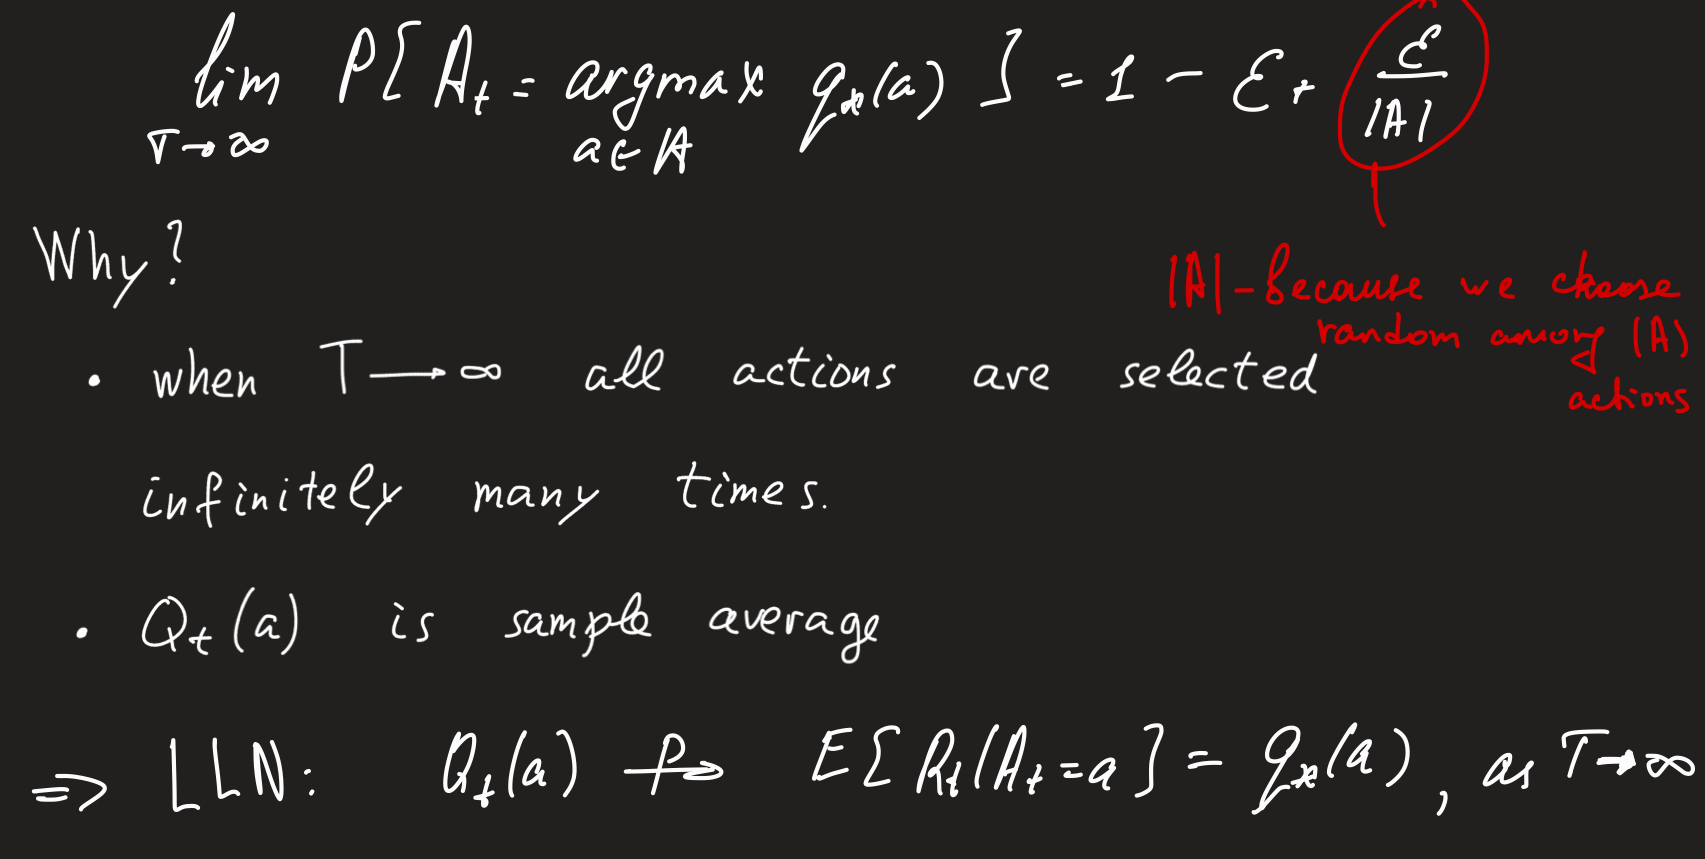 lim P[ A_t = argmax q_*(a) ] = 1 - ε + ε/|A|
T→∞ a∈A
Why?
|A| - Because we choose
random among |A|
actions
• when T → ∞ all actions are selected
infinitely many times.
• Q_t(a) is sample average
=> LLN: Q_t(a) →^P E[ R_t | A_t = a ] = q_*(a), as T→∞